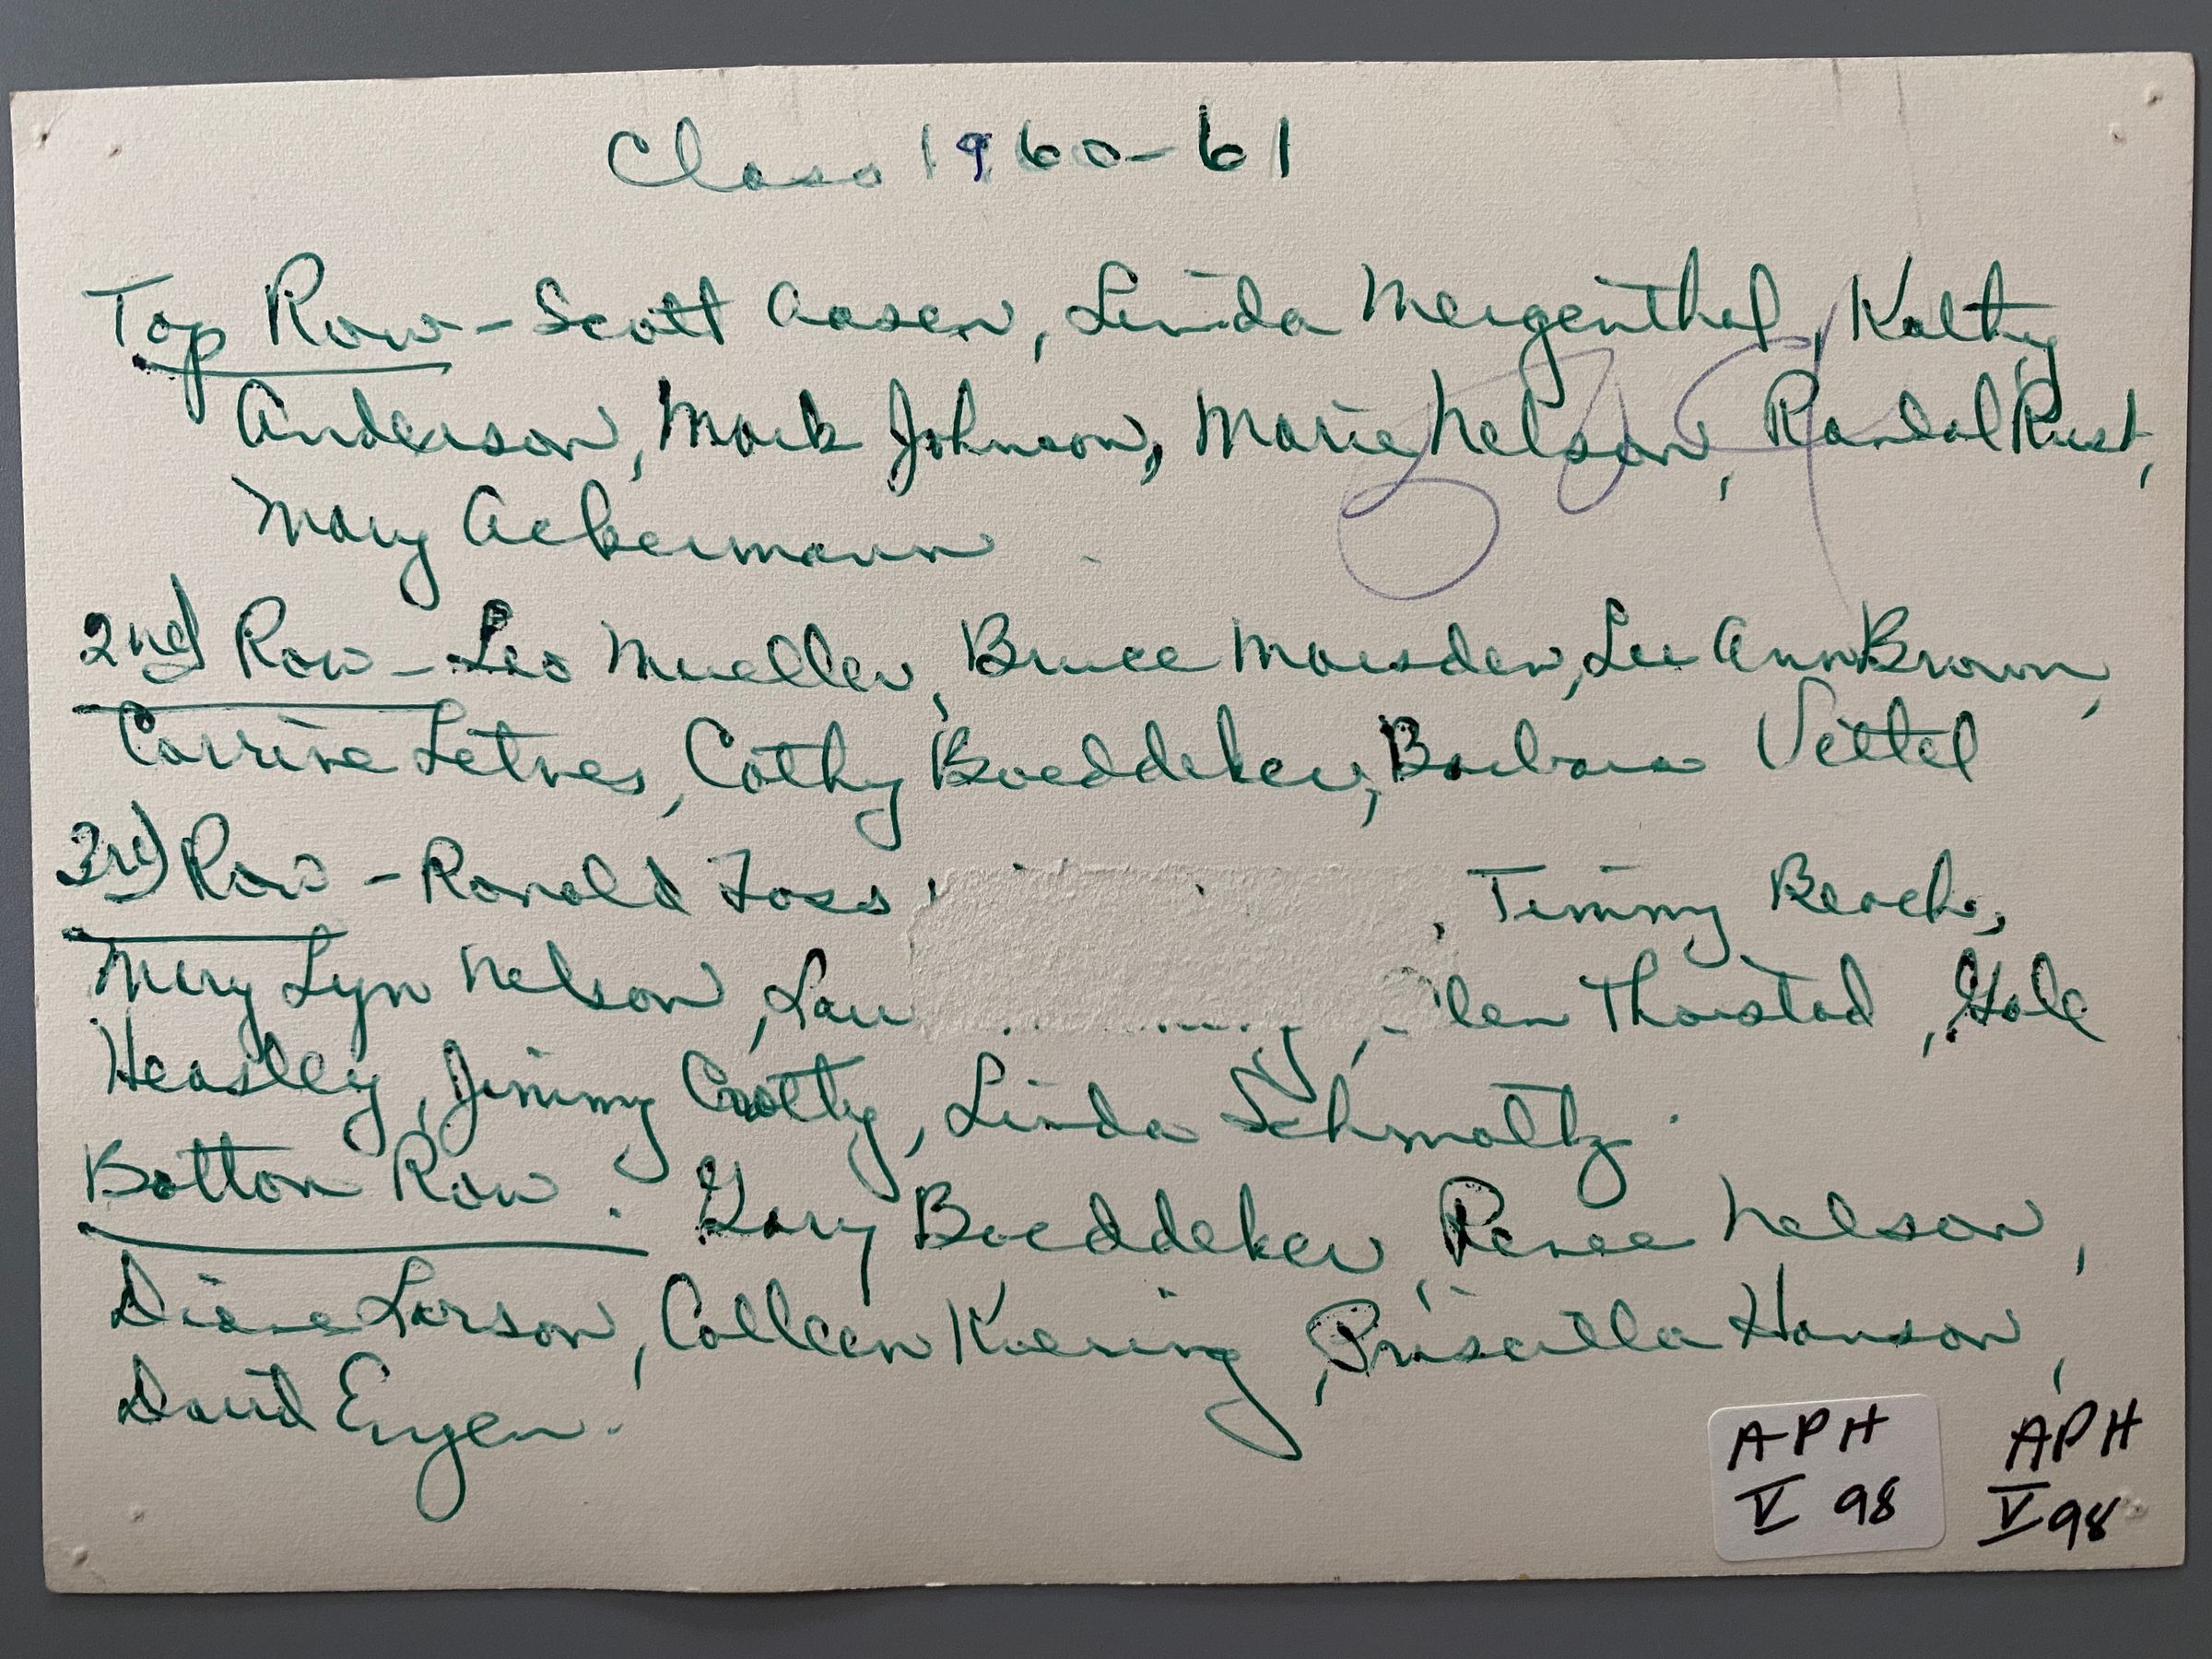 Class 1960-61
Top Row - Scott Aasen, Linda Mergenthal, Kathy
Anderson, Mark Johnson, Marie Nelson, Randal Rust,
Mary Ackermann
2nd Row - Leo Mueller, Bruce Marsden, Lee Ann Brown,
Corrine Letnes, Cathy Boeddeker, Barbara Vettel
3rd Row - Ronald Foss, Timmy Beach,
Mery Lyn Nelson, Thorstad, Gale
Heasley, Jimmy Crotty, Linda Schmaltz.
Bottom Row. Gary Boeddeker, Renee Nelson,
Diane Larson, Colleen Kiering, Priscilla Hanson,
David Engen.
APH
V 98
APH
V 98